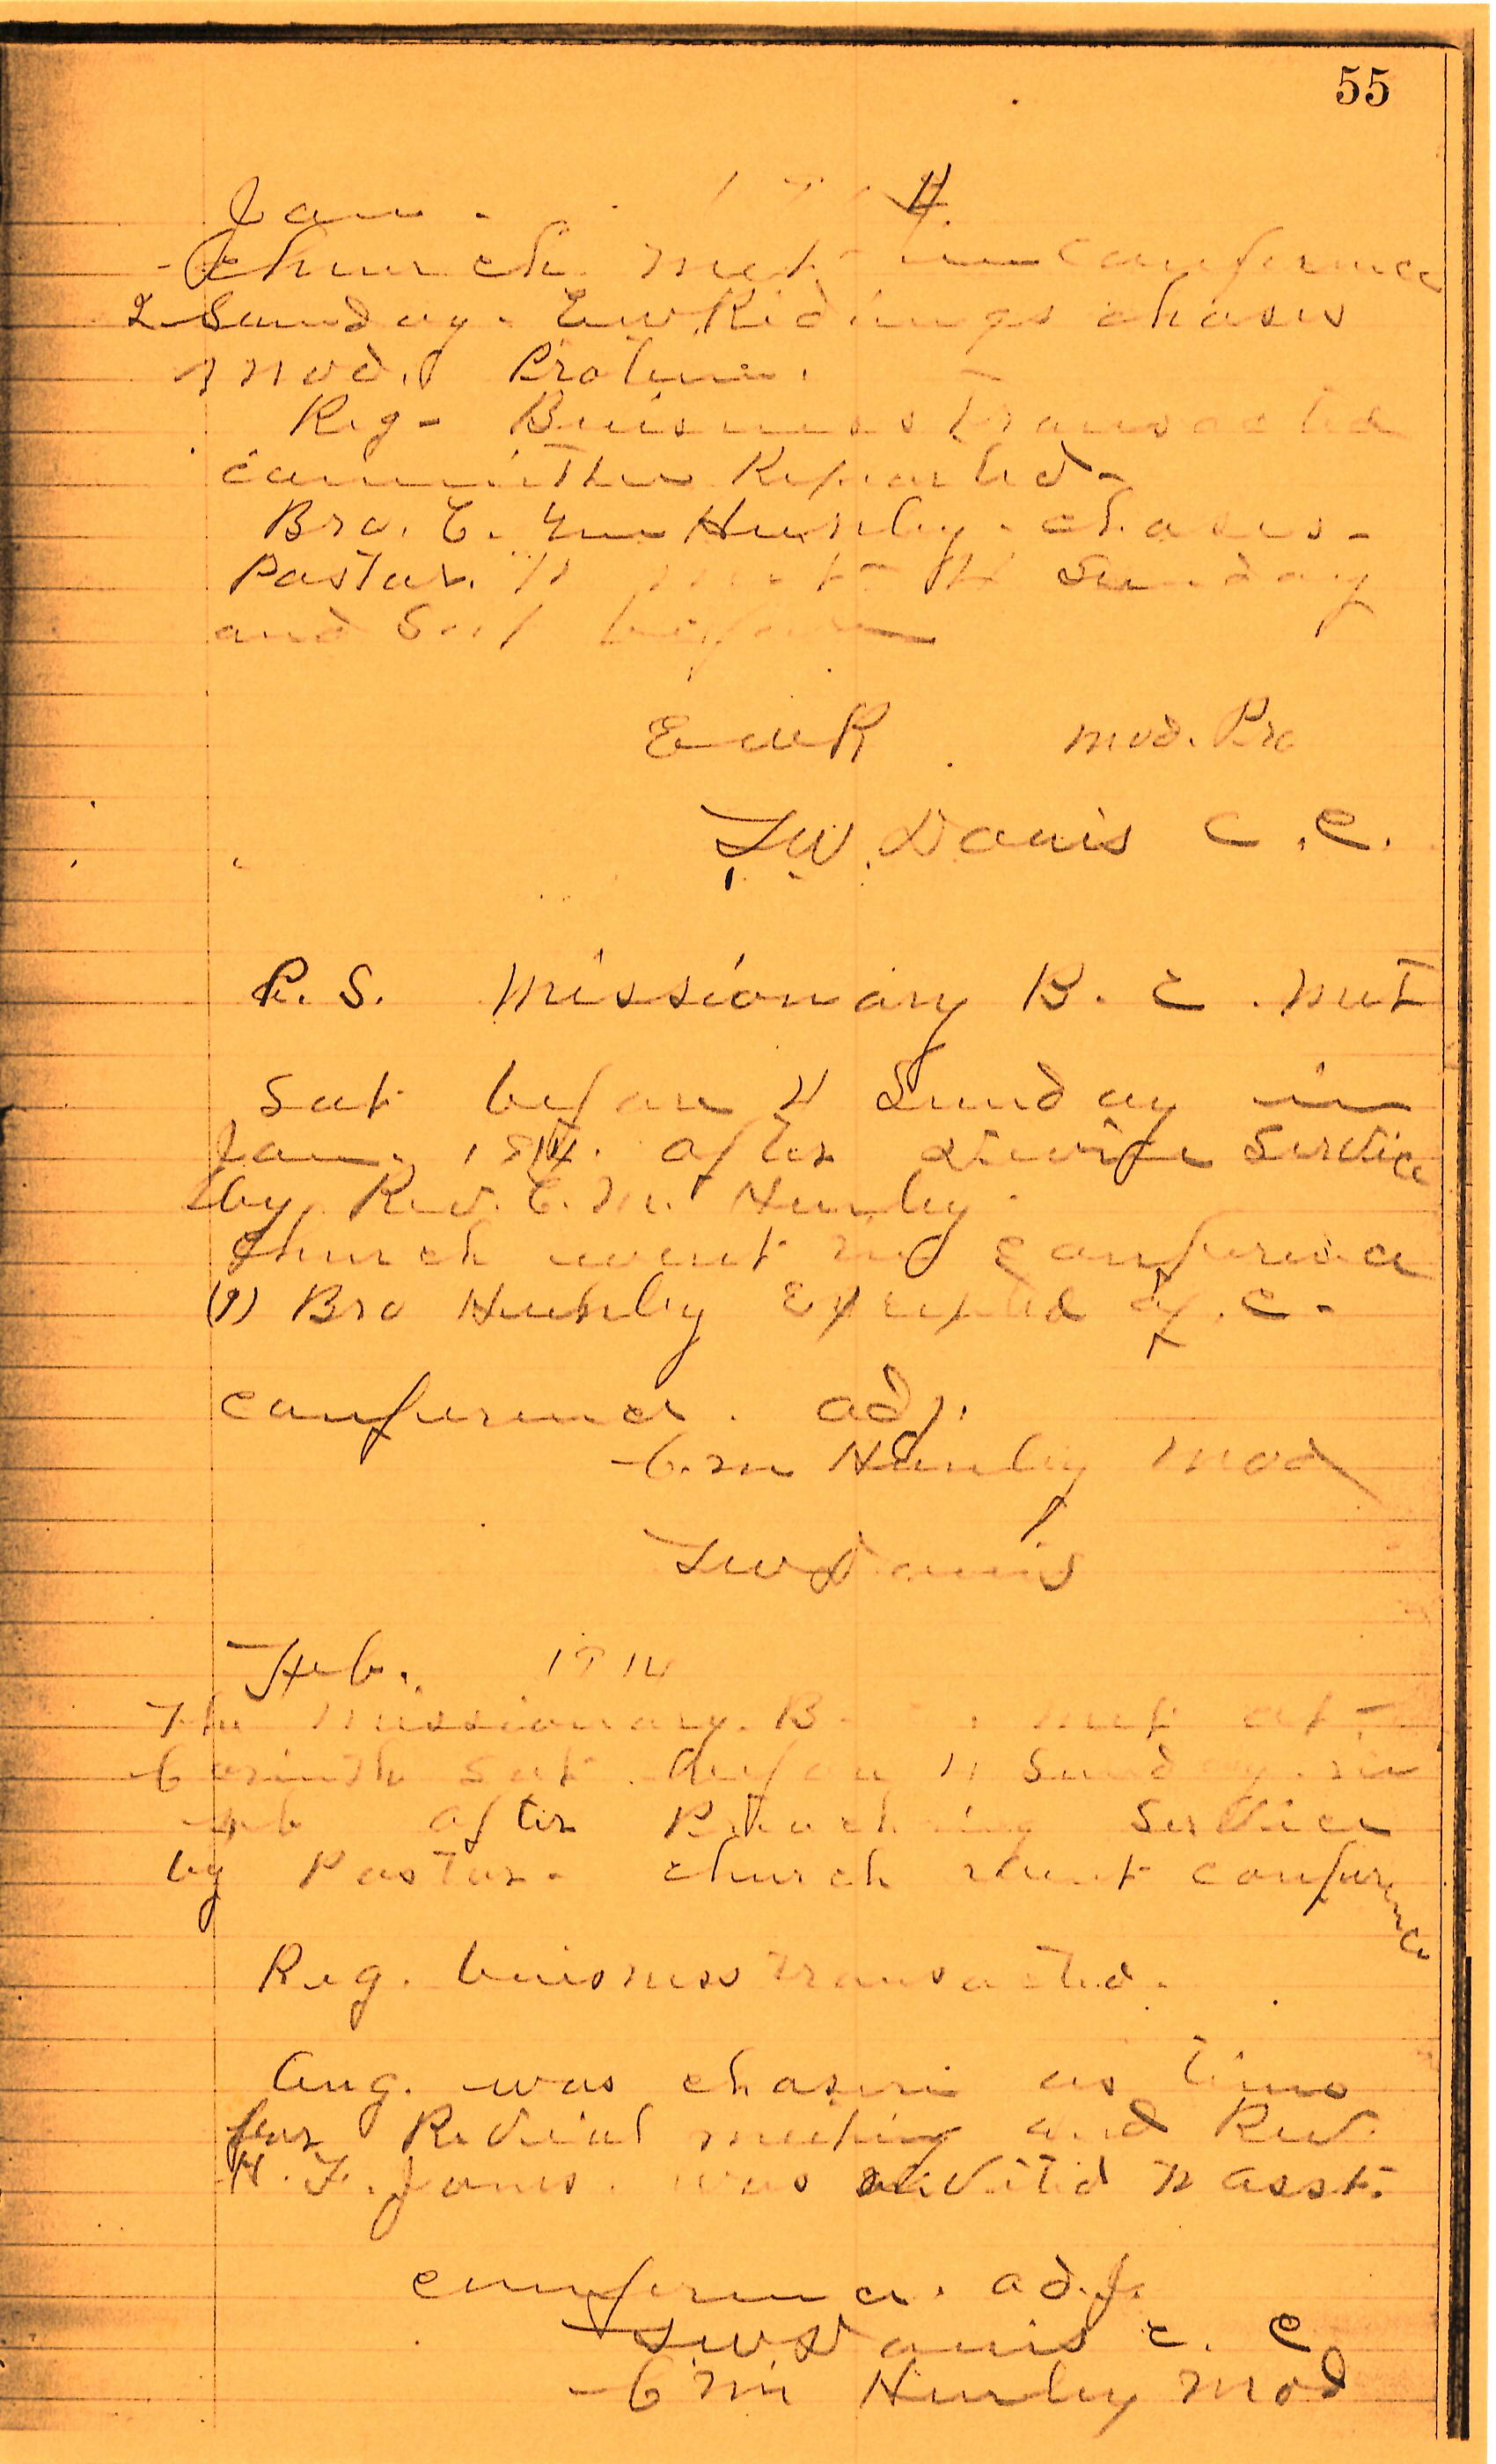 55
Jan.
Church met in conference
2 Sunday. E W Ridings chosen
mod. Protem.
Reg- Buisness transacted
committee Reported-
Bro. C. M Hunley. chosen-
Pastor. Sunday
and Sat before
E W R mod. Pro
T W Davis C. C.
P. S. Missionary B. C. met
Sat before 4 Sunday in
Jan. 1914. after divine Service
by Rev. C. M. Hunley.
Church went in conference
(1) Bro Hunley Excepted C.
conference. adj.
C. M Hunley mod
T W Davis
Feb. 1914
The Missionary. B. met at
Corinth Sat. before 4 Sunday. in
Feb after Preaching Service
by Pastor- church went conference
Reg. buisness transacted.
Aug. was chosen as time
for Revival meeting and Rev.
H. F. Jones. was invited to asst.
conference. adj.
T W Davis c. c
C M Hunley Mod